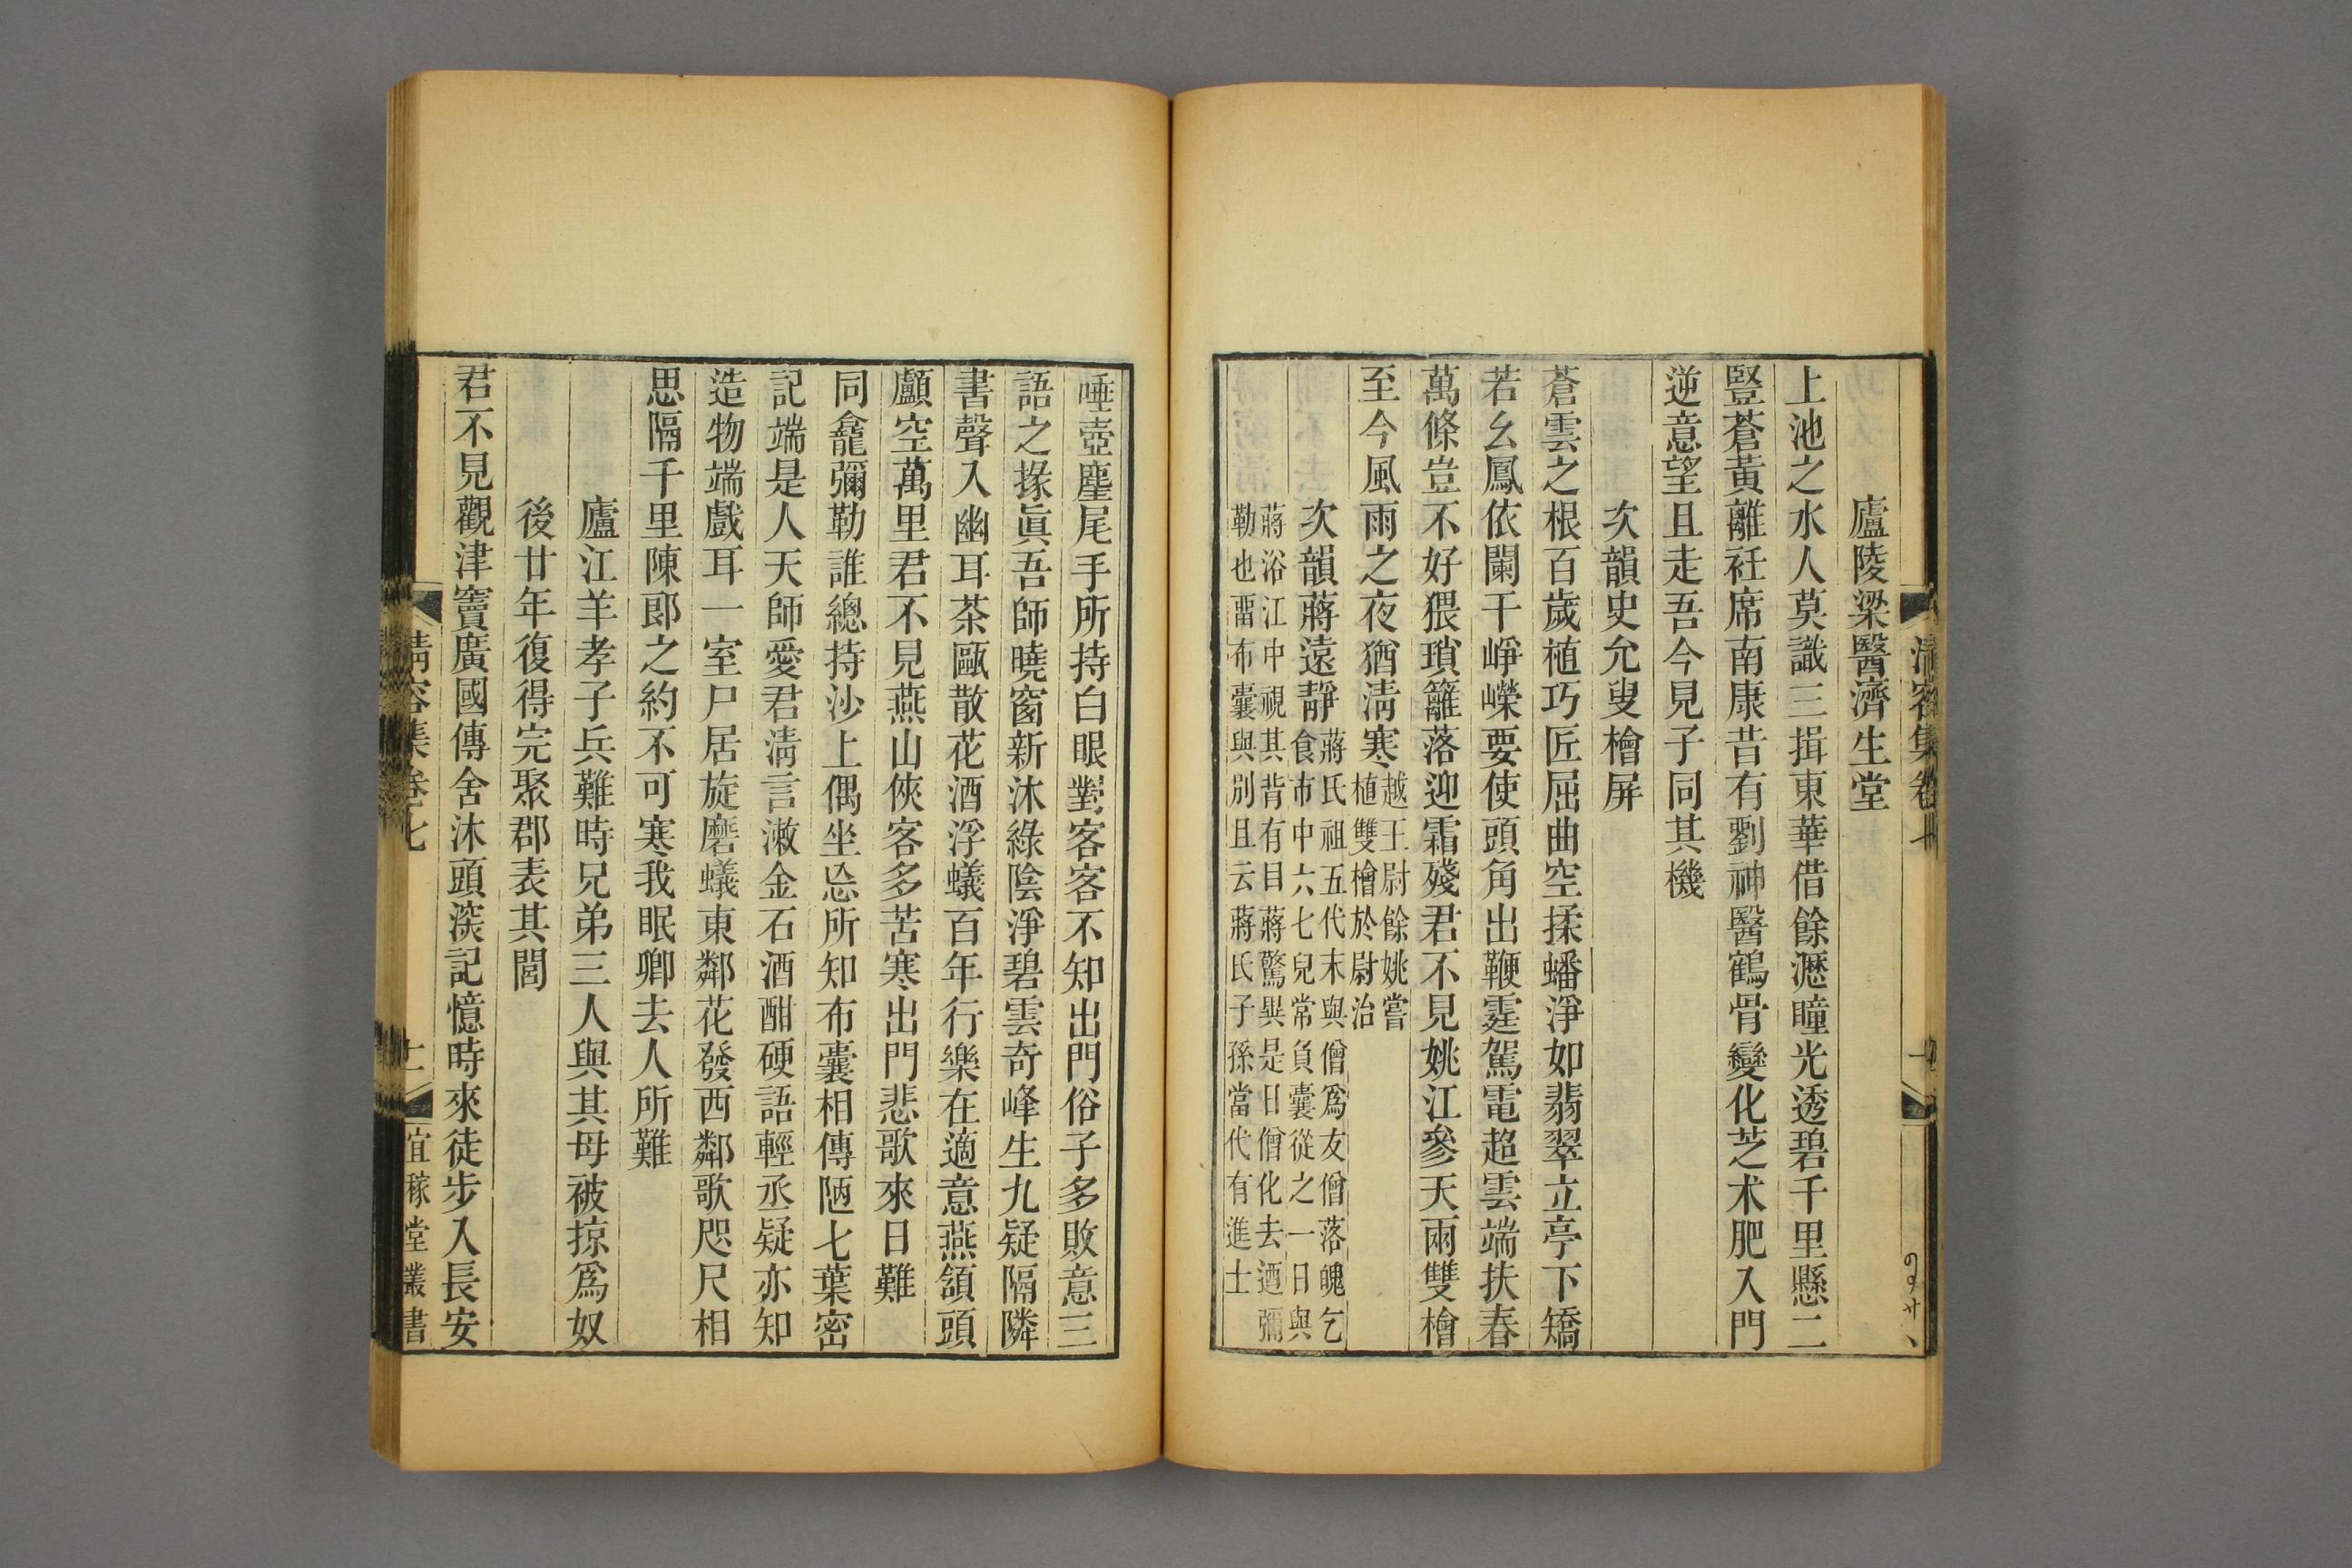 廬陵梁醫濟生堂
上池之水人莫識三揖東華借餘瀝瞳光透碧千里懸二
豎蒼黃離衽席南康昔有劉神醫鶴骨變化芝术肥入門
逆意望且走吾今見子同其機
次韻史允叟檜屏
蒼雲之根百歲植巧匠屈曲空揉蟠淨如翡翠立亭下矯
若幺鳳依闌干崢嶸要使頭角出鞭霆駕電超雲端扶春
萬條豈不好猥瑣籬落迎霜殘君不見姚江參天兩雙檜
至今風雨之夜猶淸寒越王尉餘姚嘗植雙檜於尉治
次韻蔣遠靜蔣氏祖五代末與僧爲友僧落魄乞食市中六七兒常負囊從之一日與
蔣浴江中視其背有目蔣驚異是日僧化去迺彌
勒也畱布囊與別且云蔣氏子孫當代有進士
唾壺麈尾手所持白眼對客客不知出門俗子多敗意三
語之掾眞吾師曉窗新沐綠陰淨碧雲奇峰生九疑隔隣
書聲入幽耳茶甌散花酒浮蟻百年行樂在適意燕頷頭
顱空萬里君不見燕山俠客多苦寒出門悲歌來日難
同龕彌勒誰總持沙上偶坐忘所知布囊相傳陋七葉密
記端是人天師愛君淸言漱金石酒酣硬語輕丞疑亦知
造物端戲耳一室尸居旋磨蟻東鄰花發西鄰歌咫尺相
思隔千里陳郞之約不可寒我眠卿去人所難
廬江羊孝子兵難時兄弟三人與其母被掠爲奴
後廿年復得完聚郡表其閭
君不見觀津竇廣國傳舍沐頭深記憶時來徒步入長安
淸容集卷七
十一
宜稼堂叢書